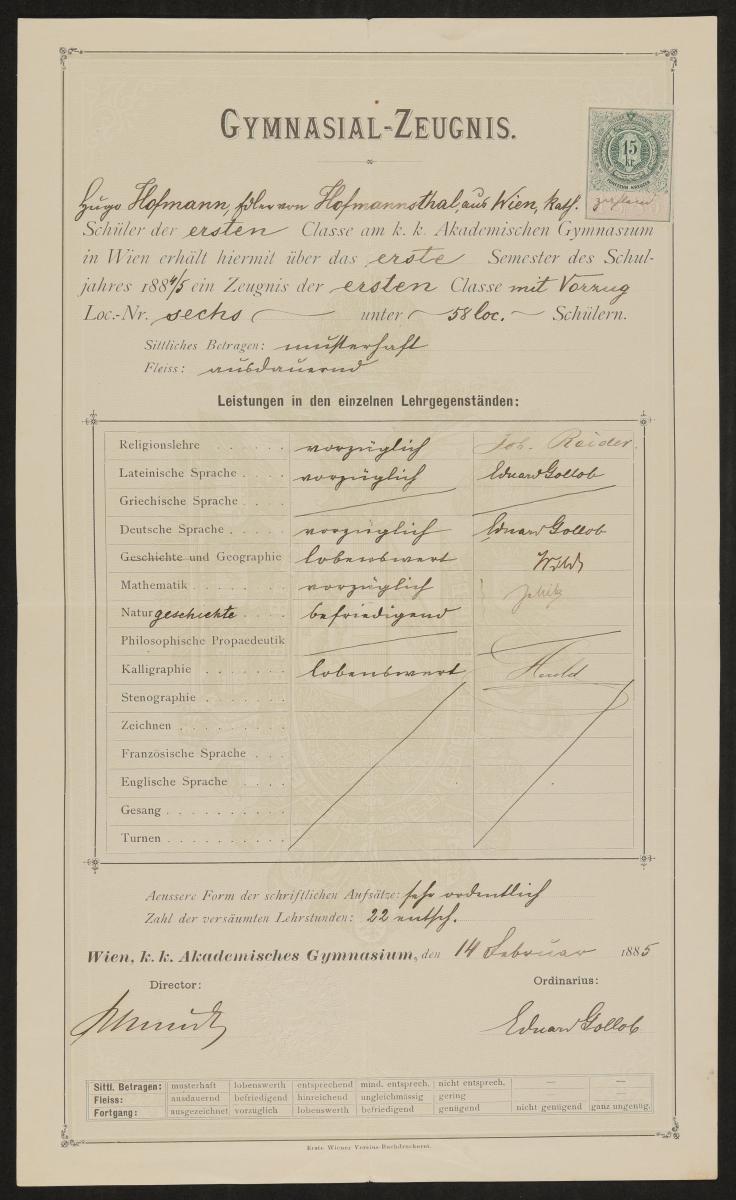 GYMNASIAL-ZEUGNIS.
15
kr
Hugo Hofmann, Edler von Hofmannsthal, aus Wien, kath.
Schüler der ersten Classe am k. k. Akademischen Gymnasium
in Wien erhält hiermit über das erste Semester des Schul-
jahres 1884/5 ein Zeugnis der ersten Classe mit Vorzug
Loc.-Nr. sechs unter 58 loc. Schülern.
Sittliches Betragen: musterhaft
Fleiss: ausdauernd
Leistungen in den einzelnen Lehrgegenständen:
Religionslehre . . . . . . vorzüglich Joh.
Lateinische Sprache . . . . vorzüglich Eduard Gollob
Griechische Sprache . . . .
Deutsche Sprache . . . . . vorzüglich Eduard Gollob
Geschichte und Geographie lobenswert
Mathematik . . . . . . . vorzüglich
Naturgeschichte . . . . befriedigend
Philosophische Propaedeutik
Kalligraphie . . . . . . . lobenswert Herold
Stenographie . . . . . . .
Zeichnen . . . . . . . . .
Französische Sprache . . .
Englische Sprache . . . .
Gesang . . . . . . . . . .
Turnen . . . . . . . . . .
Aeussere Form der schriftlichen Aufsätze: sehr ordentlich
Zahl der versäumten Lehrstunden: 22 entsch.
Wien, k. k. Akademisches Gymnasium, den 14 Februar 1885
Director: Ordinarius:
Eduard Gollob
Sittl. Betragen: musterhaft lobenswerth entsprechend mind. entsprech. nicht entsprech. — —
Fleiss: ausdauernd befriedigend hinreichend ungleichmässig gering — —
Fortgang: ausgezeichnet vorzüglich lobenswerth befriedigend genügend nicht genügend ganz ungenüg.
Erste Wiener Vereins-Buchdruckerei.